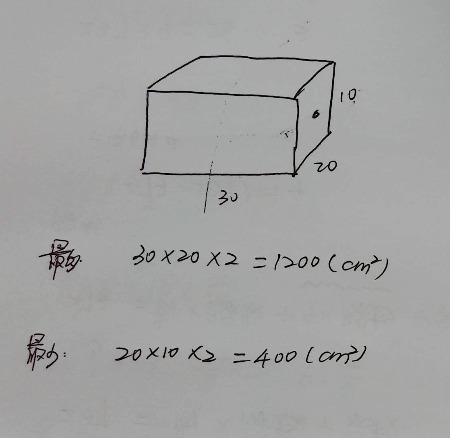 10
20
30
最多: 30×20×2=1200(cm²)
最少: 20×10×2=400(cm²)